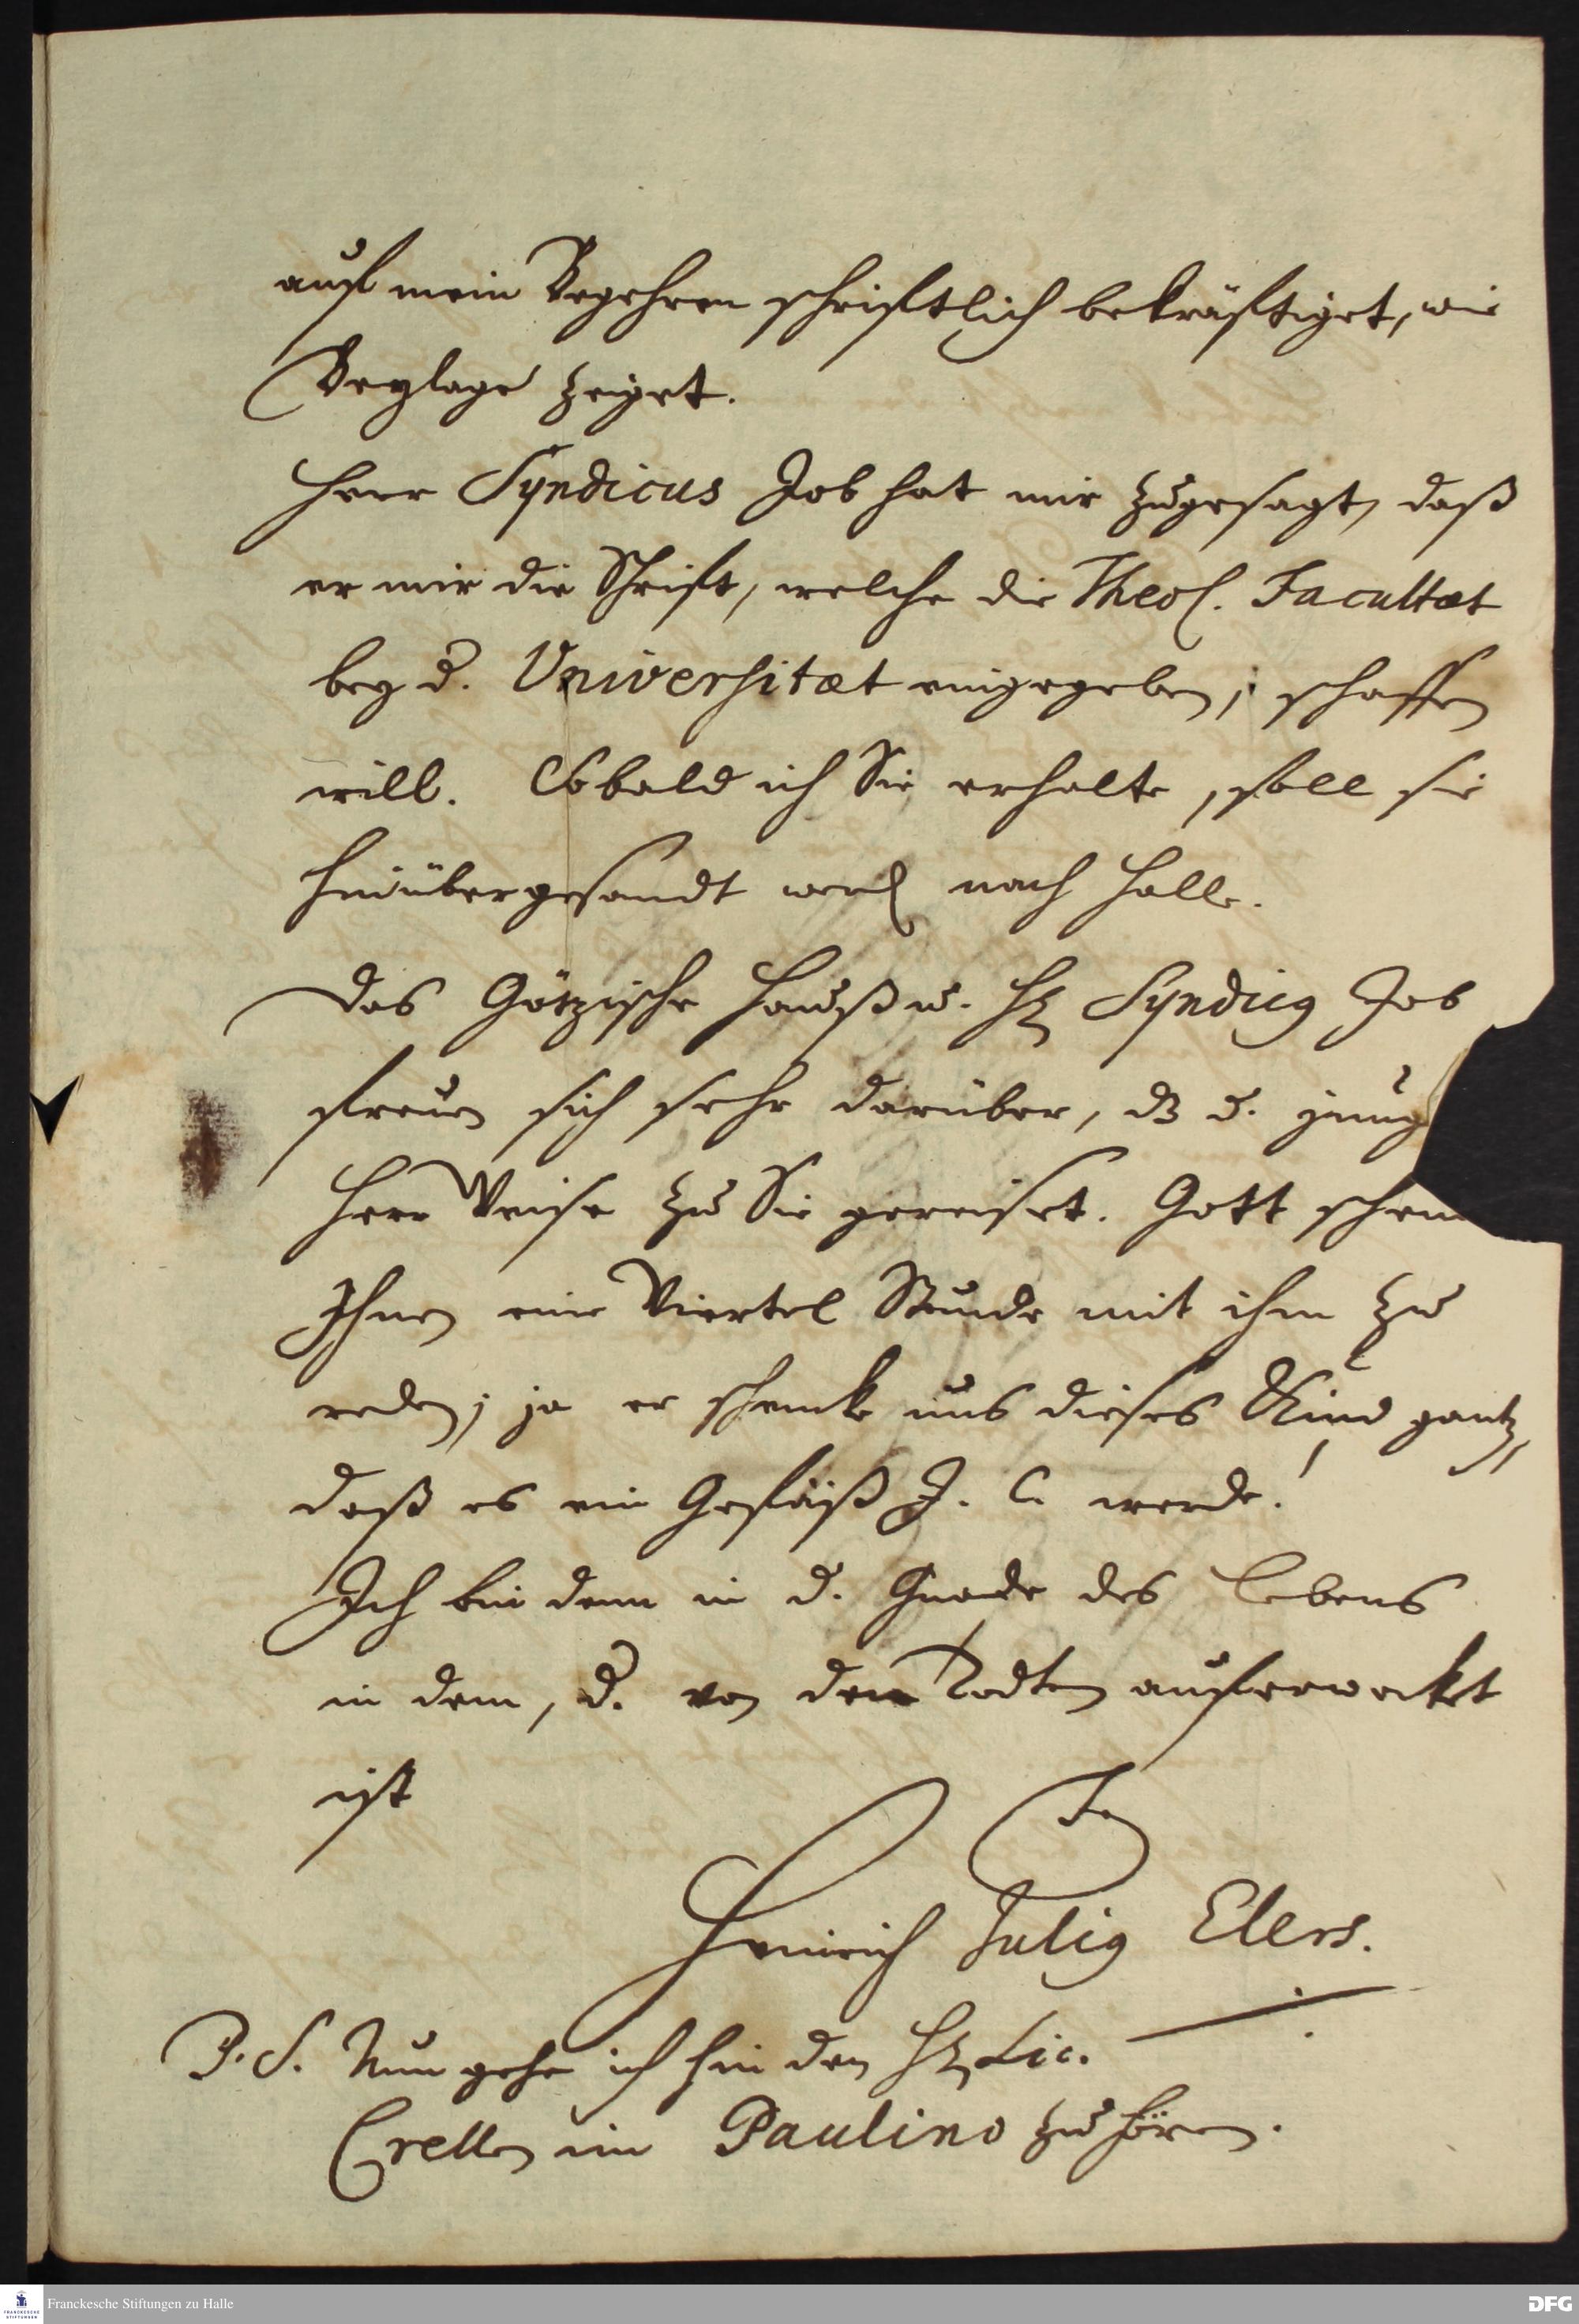 auf mein Begehren schrifftlich bekräfftiget, wie
Beylage zeiget.
Herr Syndicus Job hat mir zugesagt, daß
er mir die Schrifft, welche die Theol. Facultæt
bey d. Universitæt eingegeben, schaffen
will. Sobald ich Sie erhalte, soll sie
hinüber gesandt werd nach Halle.
Das Götzische Hauß u. H Syndicus Job
freuen sich sehr darüber, dß d. jung
Herr Weise zu Sie gereiset. Gott schen
Ihnen eine Viertel Stunde mit ihm zu
reden; ja er schencke uns dieses Kind gantz,
daß es ein Gefäß J. C. werde!
Ich bin denn in d. Gnade des Lebens
in dem, d. von den Todten auferweckt
ist
Heinrich Julius Elers.
P. S. Nun gehe ich hin den H Lic.
Crellen im Paulino zu hören.
Franckesche Stiftungen zu Halle
DFG